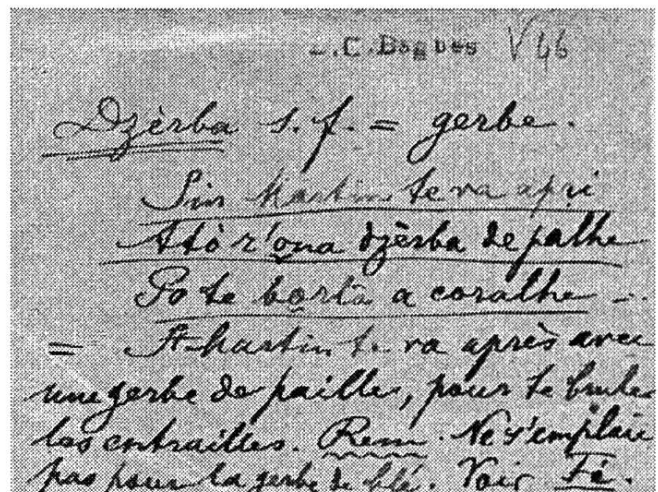 C. Dagues V 46
Dzèrba s.f. = gerbe.
Sin Martin te va apri
Atò z'ona dzèrba de palhe
Po te borlâ a coralhe -
= St-Martin te va après avec
une gerbe de paille, pour te bruler
les entrailles. Rem. Ne s'emploie
pas pour la gerbe de blé. Voir Fé.